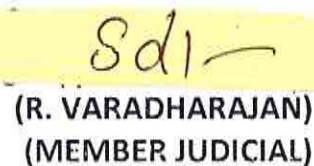 Sd/-
(R. VARADHARAJAN)
(MEMBER JUDICIAL)